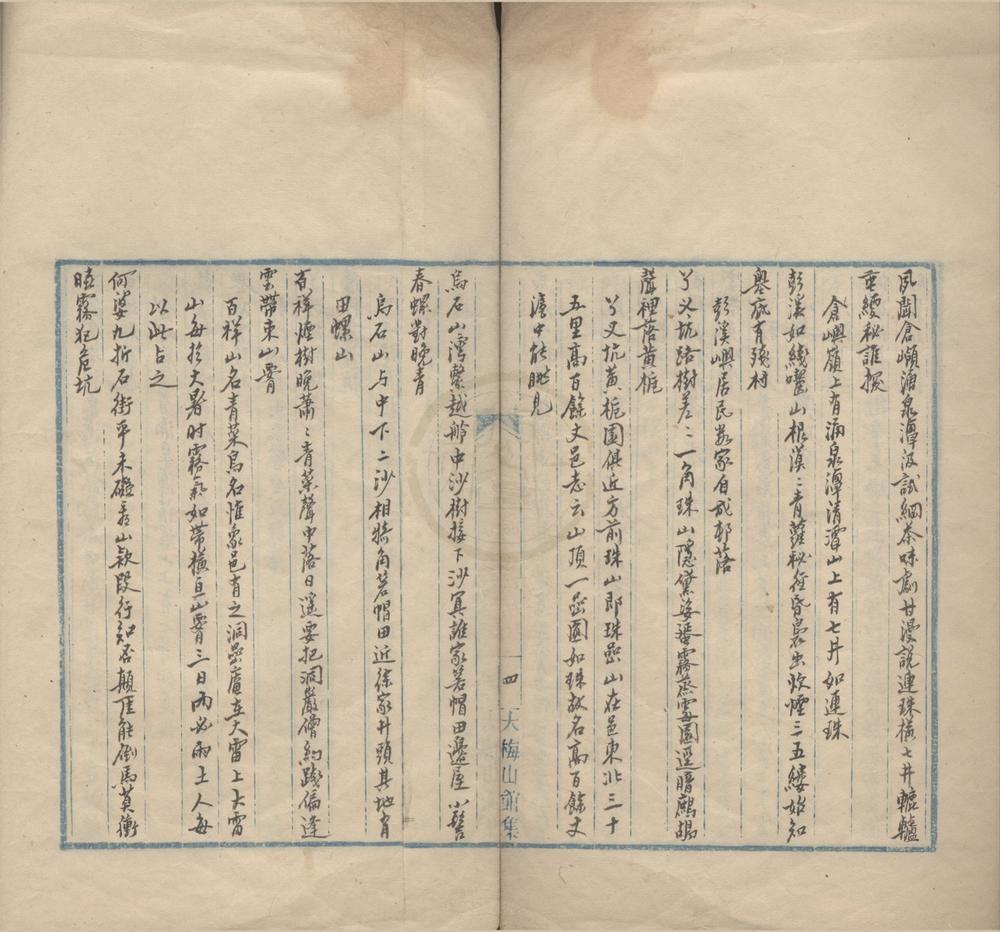 夙聞倉嶼湧泉潭汲試細茶味劇甘漫說連珠橫七井轆轤
重綆秘誰探
倉嶼嶺上有湧泉潭清潭山上有七井如連珠
彭溪如綫囓山根漠〻青蘿秘徑昏裊出炊煙三五縷始知
嶴底有殘村
彭溪嶼居民數家自成邨落
丫叉坑路樹差〻一角珠山隱黛姿番霧蒸雲園逕暗鷓鴣
聲裡落黃梔
丫叉坑黃梔園俱近方前珠山即珠嵒山在邑東北三十
五里高百餘丈邑志云山頂一嵒圓如珠故名高百餘丈
海中能眺見
烏石山灣繫越舲中沙樹接下沙冥誰家箬帽田邊屋小髻
春螺對晚青
烏石山与中下二沙相犄角箬帽田近徐家井頭其地有
田螺山
百祥煙樹晚蕭〻青菜聲中落日遥要把洞嚴僧約踐偏逢
雲帶束山腰
百祥山名青菜鳥名惟象邑有之洞嵒庵在大雷上大雷
山每於大暑时霧氣如带橫亘山腰三日內必雨土人每
以此占之
何婆九折石街平木磴舂山欵段行知否顛厓能倒馬莫衝
曉霧犯危坑
四
大梅山館集